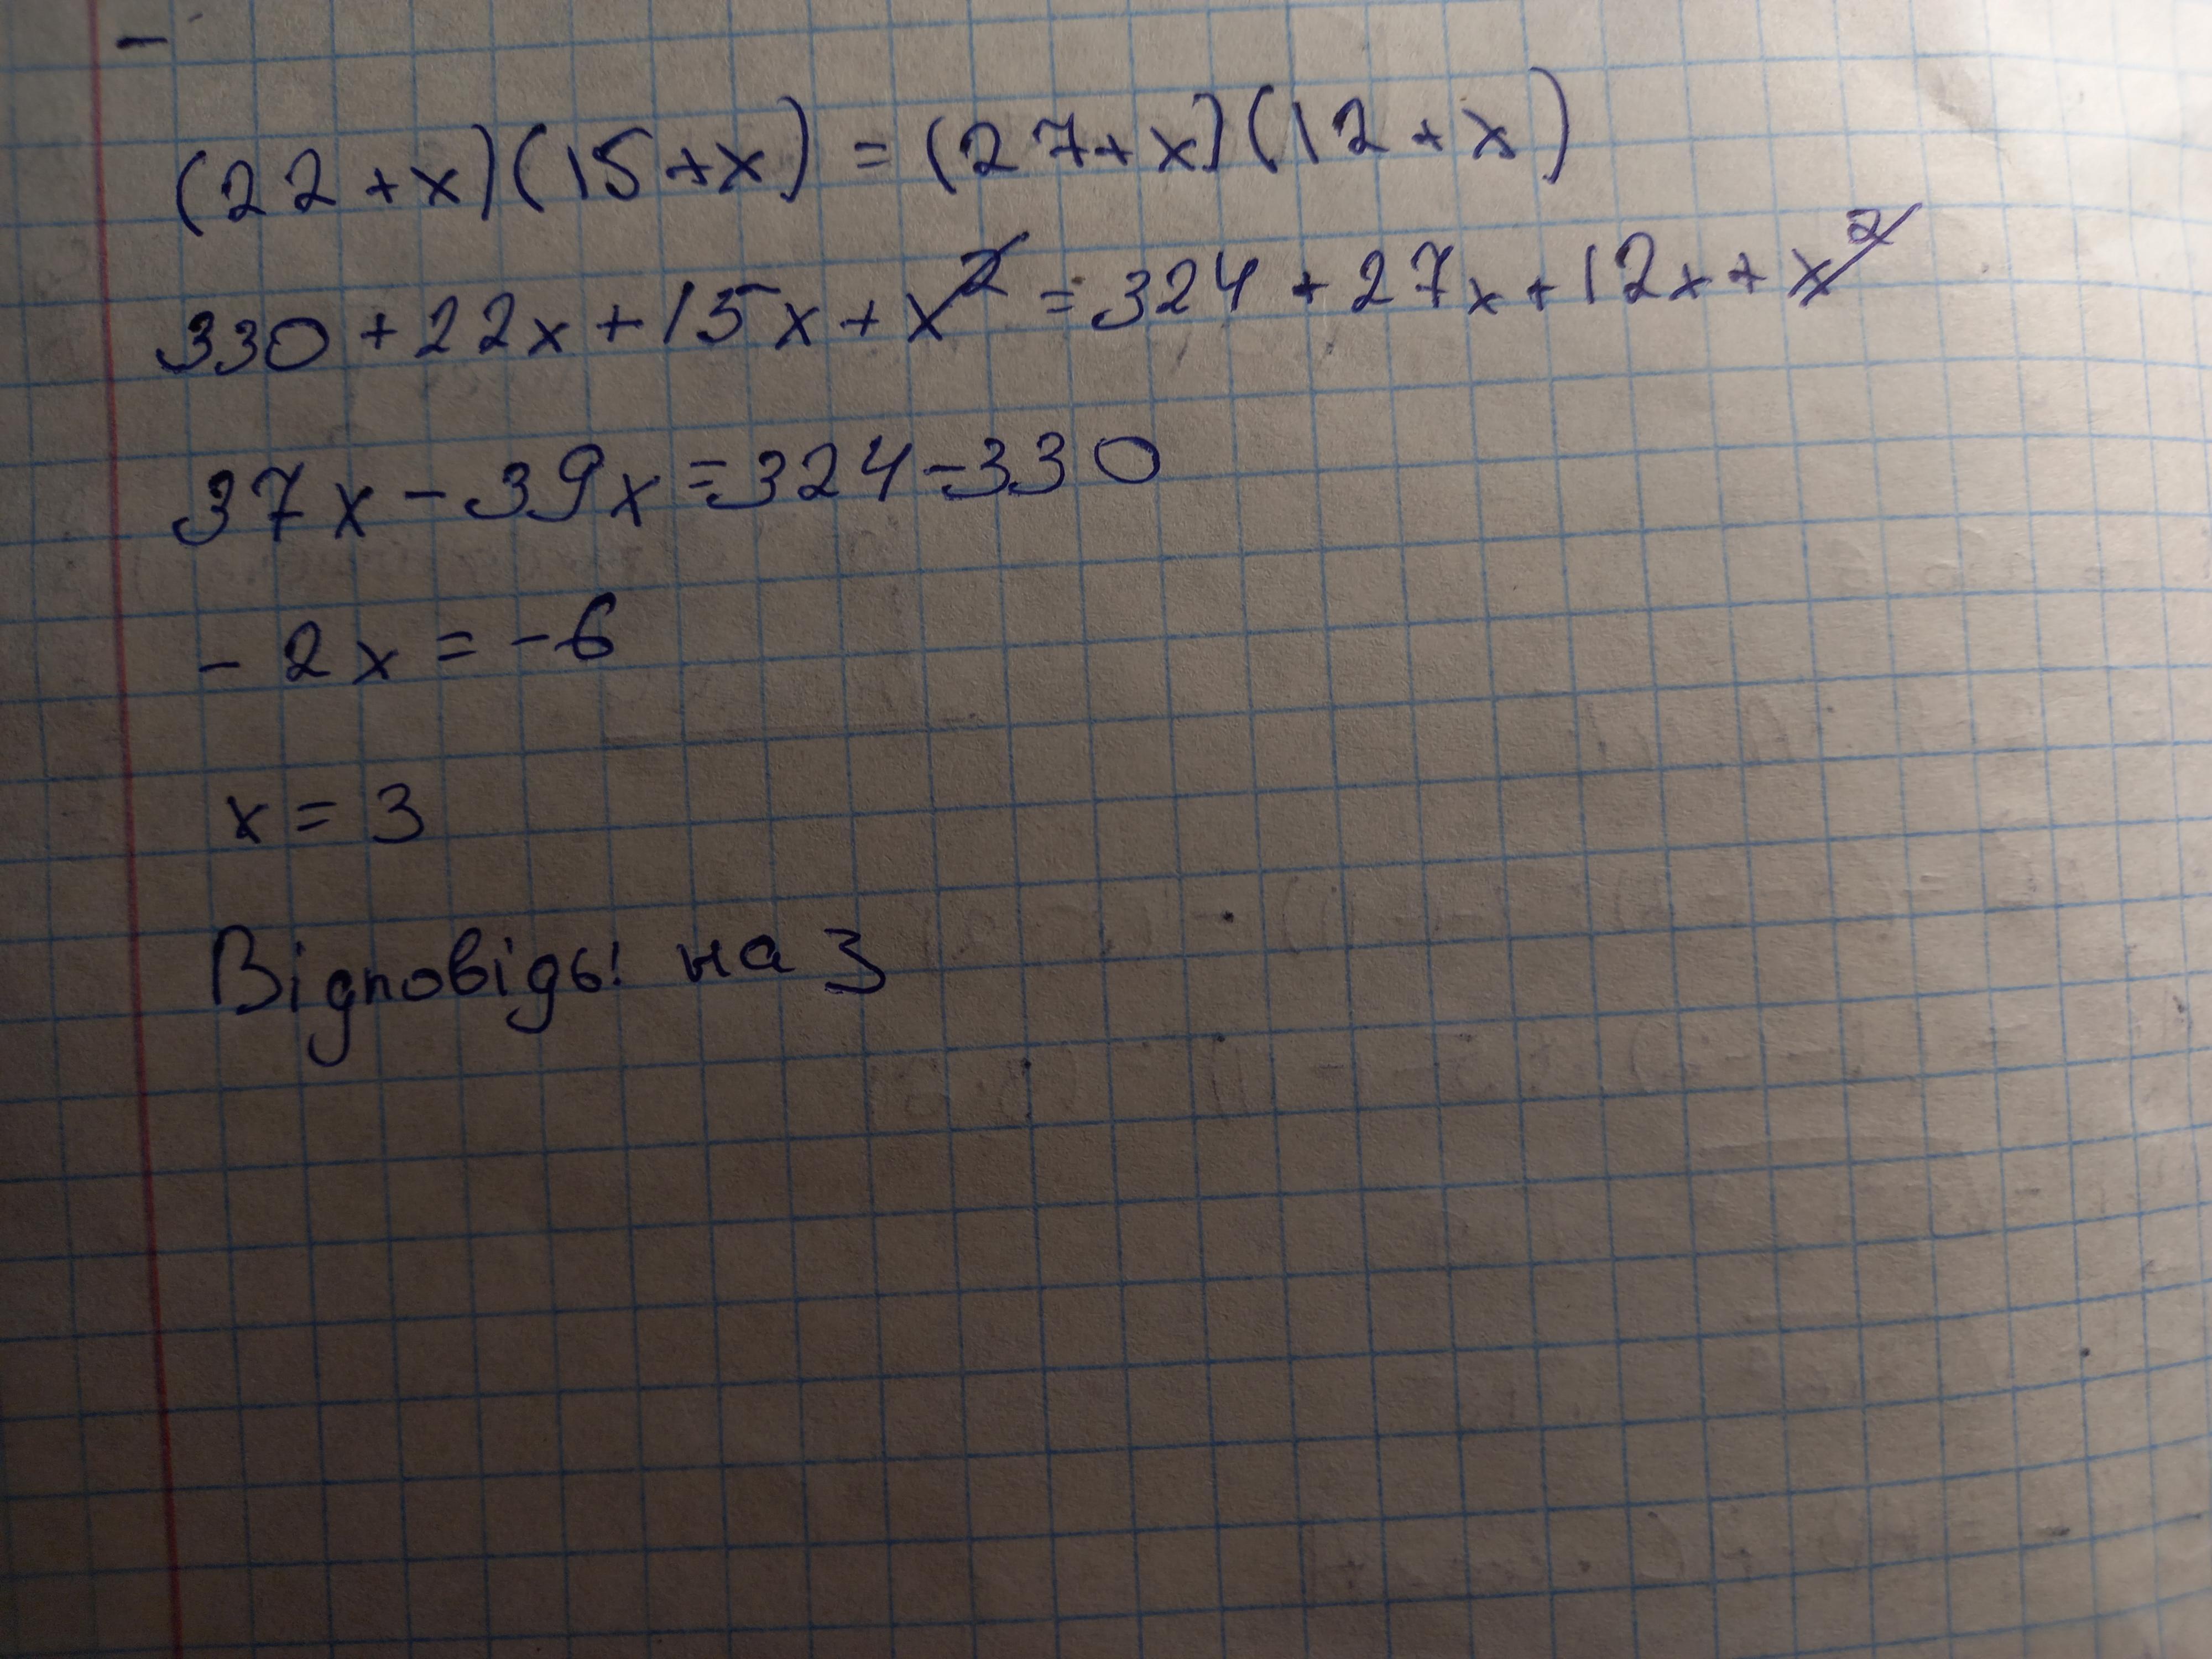 (22+x)(15+x) = (27+x)(12+x)
330+22x+15x+x² = 324+27x+12x+x²
37x-39x=324-330
-2x=-6
x=3
Відповідь: на 3